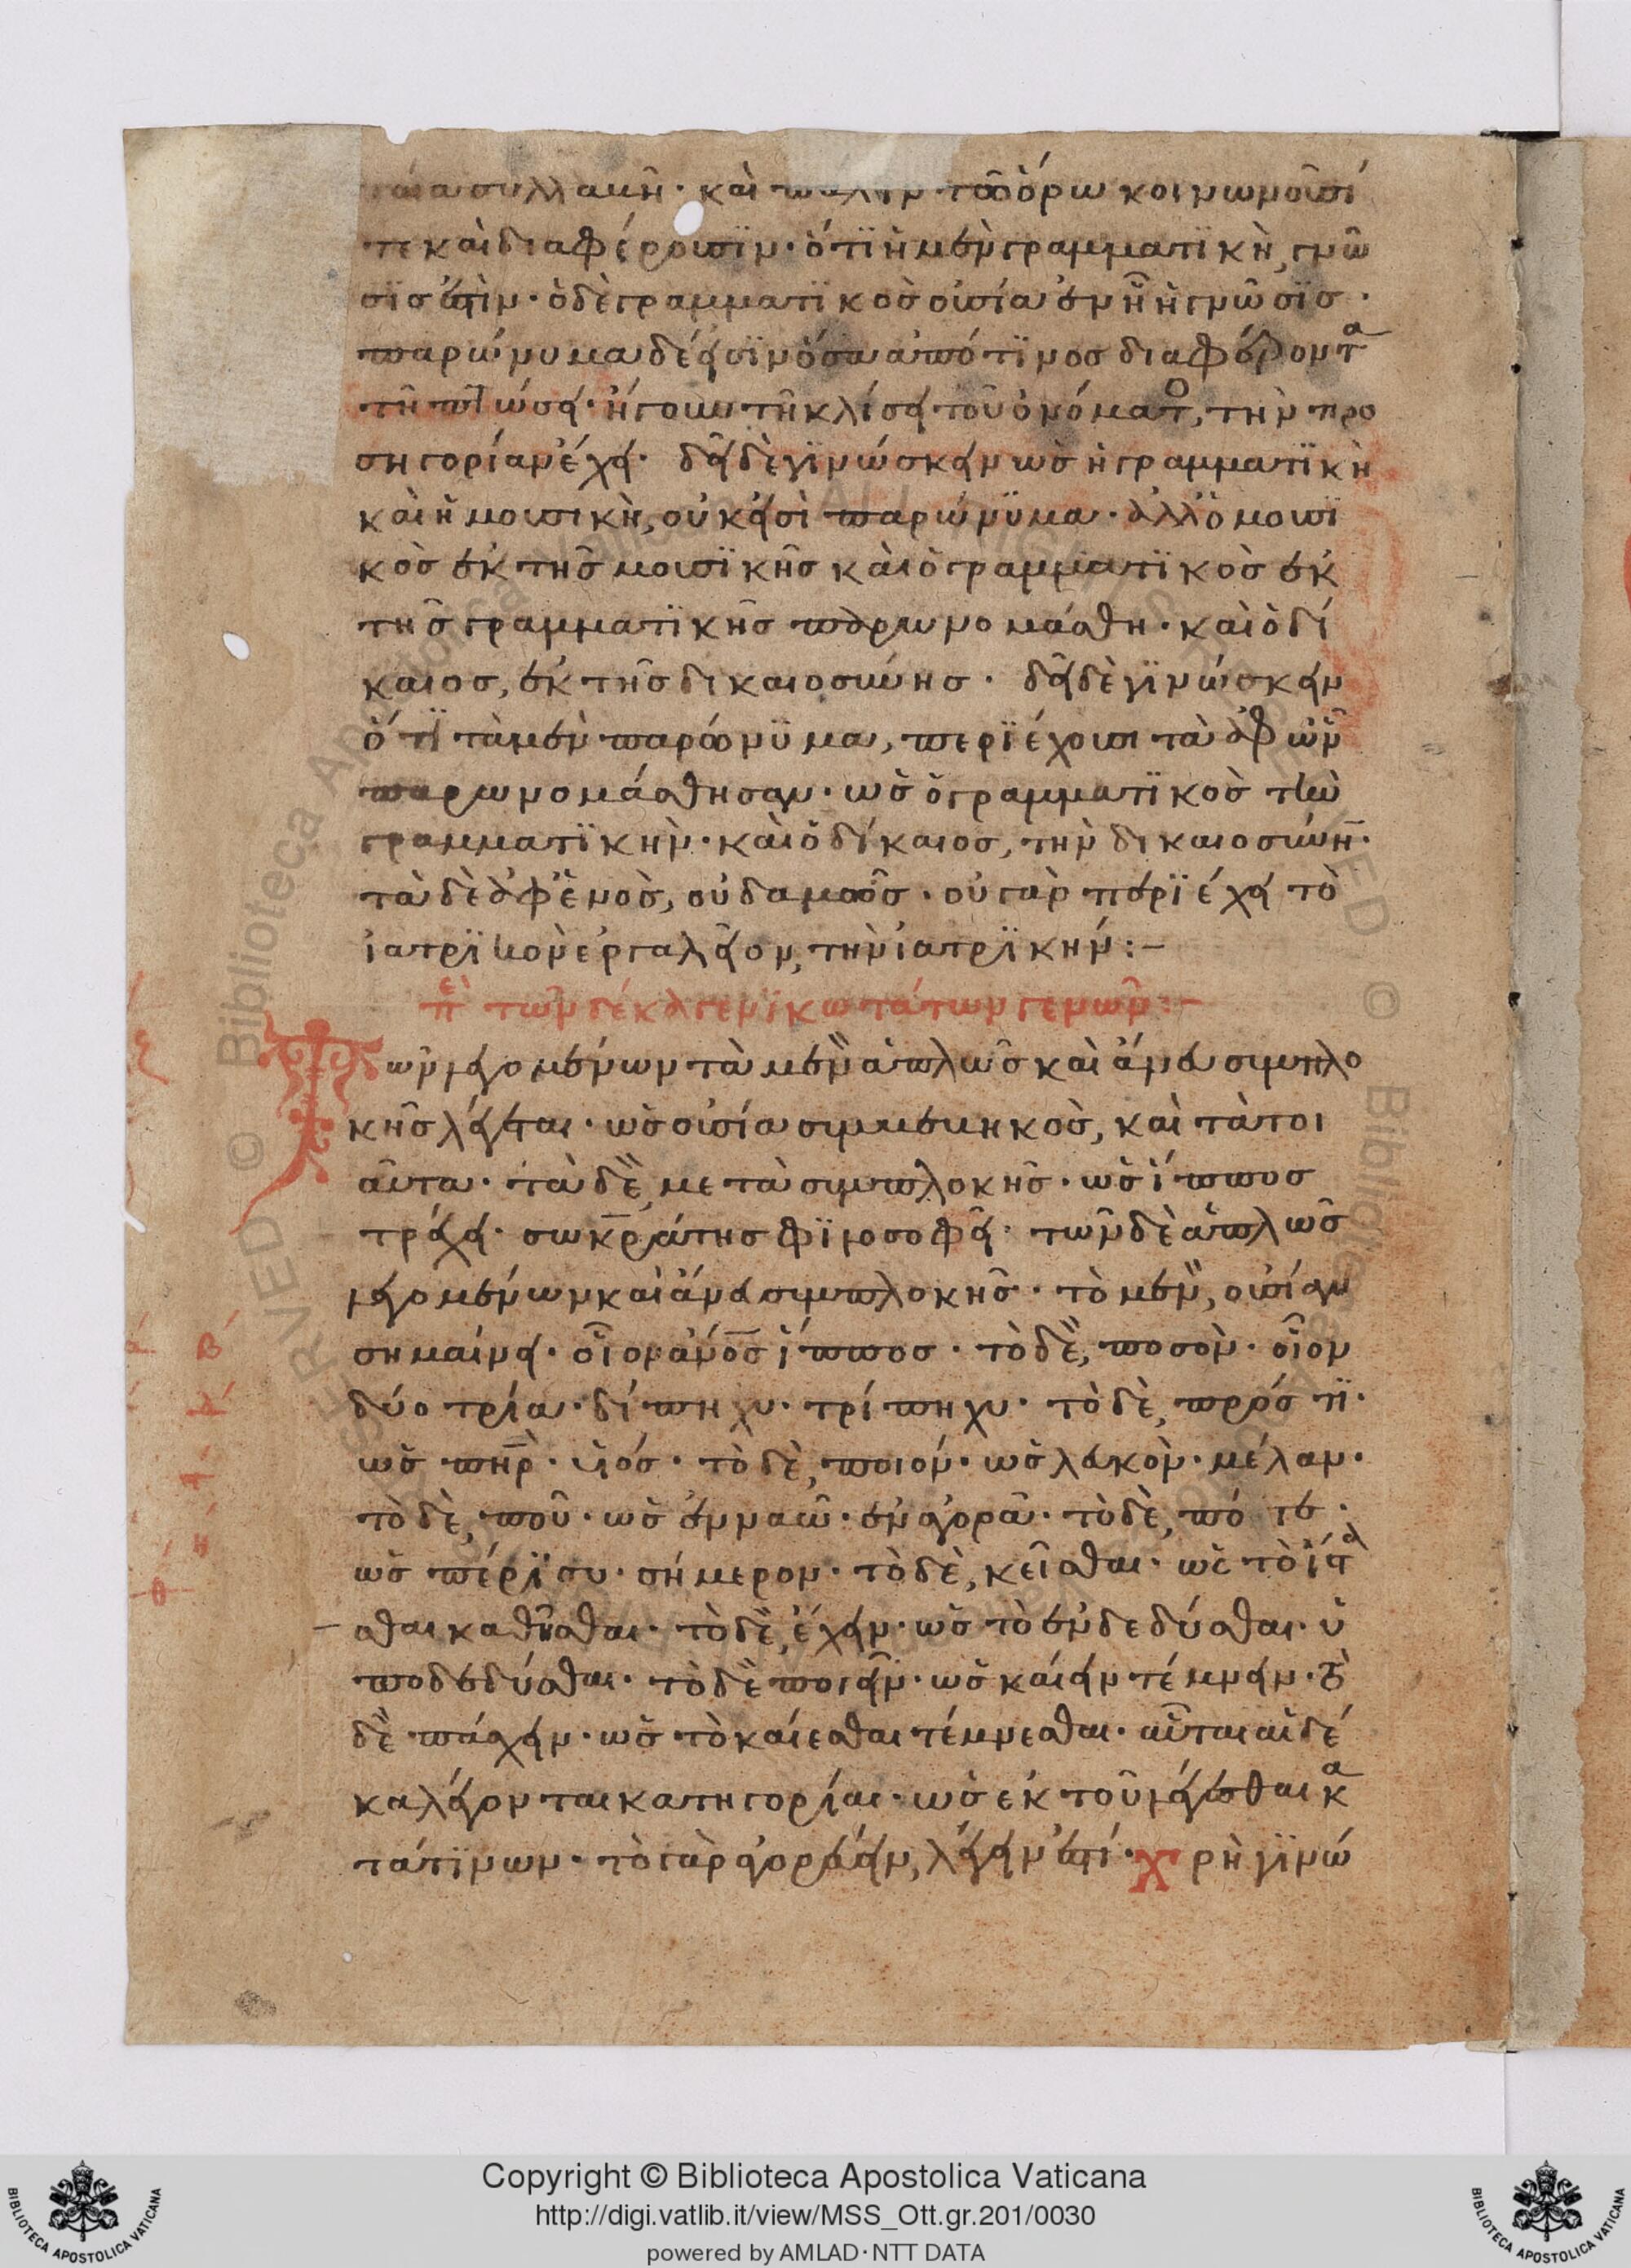 συλλαβῆ· καὶ πάλιν τῶ ὅρω κοινωνοῦσί
τε καὶ διαφέρουσϊν· ὅτϊ ἡ μὲν γραμματϊκὴ, γνῶ
σϊς ἐστὶν· ὁ δὲ γραμματϊκὸς οὐσία ἐν ἧ ἡ γνῶσϊς·
παρώνυμα δέ εἰσϊν ὅσα ἀπό τϊνος διαφέροντα
τῆ πτώσει· ἤγουν τῆ κλίσει τοῦ ὀνόματο, τὴν προ
σηγορίαν ἔχει· δεῖ δὲ γϊνώσκειν ὡς ἡ γραμματϊκὴ
καὶ ἡ μουσικὴ, οὐκ εἰσὶ παρώνϋμα· ἀλλ' ὁ μουσϊ
κὸς ἐκ τῆς μουσϊκῆς καὶ ὁ γραμματϊκὸς ἐκ
τῆς γραμματϊκῆς παρωνομάσθη· καὶ ὁ δί
καιος, ἐκ τῆς δικαιοσύνης· δεῖ δὲ γϊνώσκειν
ὅτϊ τὰ μὲν παρώνϋμα, περϊέχουσι τὰ ἀφ' ὧν
παρωνομάσθησαν· ὡς ὁ γραμματϊκὸς τὴν
γραμματϊκὴν· καὶ ὁ δίκαιος, τὴν δικαιοσύνη̄·
τὰ δὲ ἀφ' ἑνὸς, οὐδαμῶς· οὐ γὰρ περϊέχει τὸ
ἰατρϊκὸν ἐργαλεῖον, τὴν ἰατρϊκήν:–
πὲ τῶν δέκα γενϊκωτάτων γενῶν:–
Τῶν λεγομένων τὰ μὲν ἁπλῶς καὶ ἄνευ συμπλο
κῆς λέγεται· ὡς οὐσία συμβεβηκὸς, καὶ τὰ τοι
αῦτα· τὰ δὲ, μετὰ συμπλοκῆς· ὡς ἵππος
τρέχει· σωκράτης φϊλοσοφεῖ· τῶν δὲ ἁπλῶς
λεγομένων καὶ ἄνευ συμπλοκῆς· τὸ μὲν, οὐσίαν
σημαίνει· οἷον ἄν̅ο̅ς̅ ἵππος· τὸ δὲ, ποσὸν· οἷον
δύο τρία· δίπηχυ· τρίπηχυ· τὸ δὲ, πρός τϊ·
ὡς πη̅ρ̅· υἱός· τὸ δὲ, ποιόν· ὡς λευκὸν· μέλαν·
τὸ δὲ, ποῦ· ὡς ἐν ναῶ· ἐν ἀγορᾶ· τὸ δὲ, πότε·
ὡς πέρϊσυ· σήμερον· τὸ δὲ, κεῖσθαι· ὡς τὸ ἵστα
σθαι καθῆσθαι· τὸ δὲ, ἔχειν· ὡς τὸ ἐνδεδύσθαι· ὑ
ποδεδύσθαι· τὸ δὲ ποιεῖν· ὡς καίειν τέμνειν· τὸ
δὲ πάσχειν· ὡς τὸ καίεσθαι τέμνεσθαι· αὗται αἱ δέ
καλέγονται κατηγορίαι· ὡς ἐκ τοῦ λέγεσθαι κα
τά τϊνων· τὸ γὰρ ἀγορεύειν, λέγειν ἐστί· Χρὴ γϊνώ
Β´
Γ´
Δ´
Η´
Θ´
Copyright © Biblioteca Apostolica Vaticana
http://digi.vatlib.it/view/MSS_Ott.gr.201/0030
powered by AMLAD·NTT DATA
BIBLIOTECA APOSTOLICA VATICANA
BIBLIOTECA APOSTOLICA VATICANA